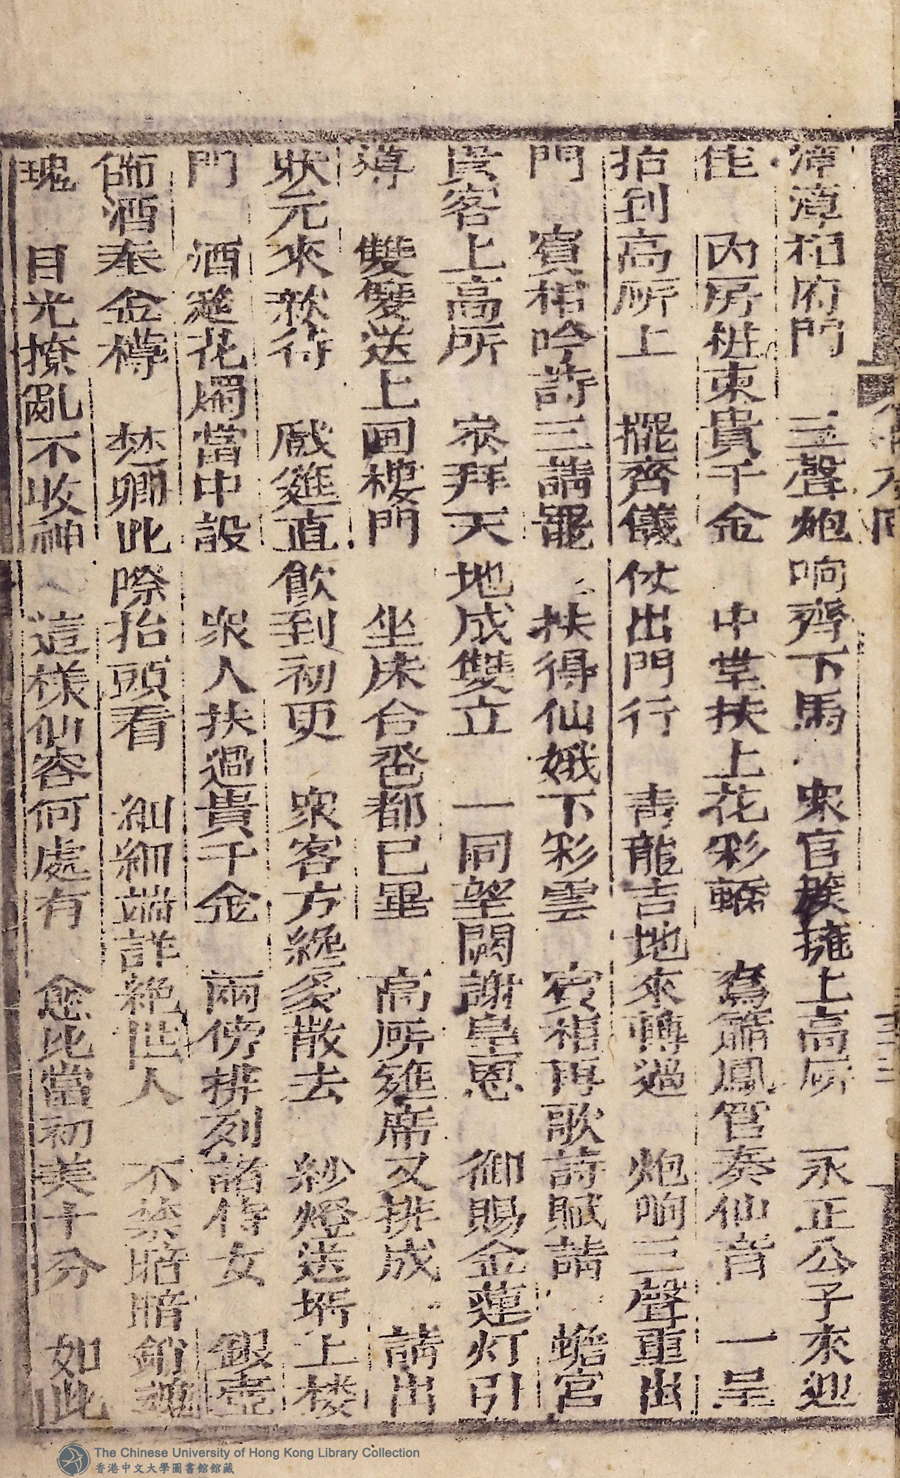 漳漳相府門　三聲炮响齊下馬　衆官簇擁上高所　永正公子來迎
佳　內房粧束貴千金　中堂扶上花彩轎　鸞簫鳳管奏仙音　一呈
抬到高所上　擺齊儀仗出門行　青龍吉地來轉過　炮响三聲重出
門　賓相吟詩三請罷　扶得仙娥下彩雲　賓相再歌詩賦請　蟾宮
貴客上高所　交拜天地成雙立　一同望闕謝皇恩　御賜金蓮灯引
導　雙雙送上回樓門　坐床合卺都已畢　高所筵席又排成　請出
狀元來欵待　戲筵直飲到初更　衆客方纔多散去　紗燈送壻上楼
門　酒筵花燭當中設　衆人扶過貴千金　兩傍排列諸侍女　銀壺
篩酒奉金樽　楚卿此際抬頭看　細細端詳絶世人　不禁暗暗銷魂
瑰　目光撩亂不收神　這樣仙容何處有　愈比當初美十分　如此
The Chinese University of Hong Kong Library Collection
香港中文大學圖書館館藏